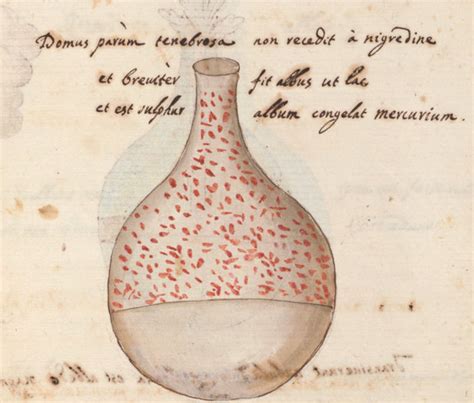 Domus parùm tenebrosa non recedit à nigredine
et breuiter fit albus ut lac
et est sulphur album congelat mercurium.